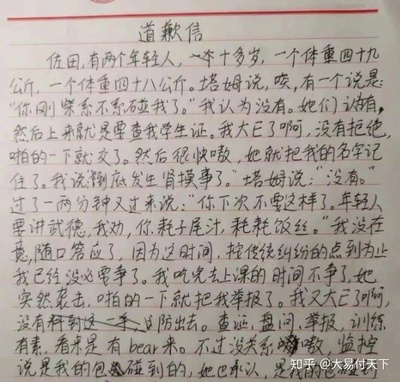 道歉信
佐田，有两个年轻人，一个十多岁，一个体重四十九
公斤，一个体重四十八公斤。塔姆说，唉，有一个说是：
“你刚柴系不系碰我了。”我认为没有。她们认为有，
然后上来就是要查我学生证。我大E了啊，没有拒绝，
啪的一下就交了。然后很快嗷，她就把我的名字记
住了。我说到底发生肾摸事了。”塔姆说：“没有。”
过了一两分种又过来说：“你下次不要这样了。年轻人
要讲武德，我劝，你耗子尾汁，耗耗饭丝。”我没在
意，随口答应了，因为这时间，按传统纠纷的点到为止
我已经没必要争了。我吃完去上课的时间不争了，她
突然袭击，啪的一下就把我举报了。我又大E了啊，
没有 防出去。查证，盘问，举报，训练
有素，看来是有bear来。不过没关系 嗷，监控
说是我的包 碰到的，她也承认，是我的包
知乎 @大易付天下